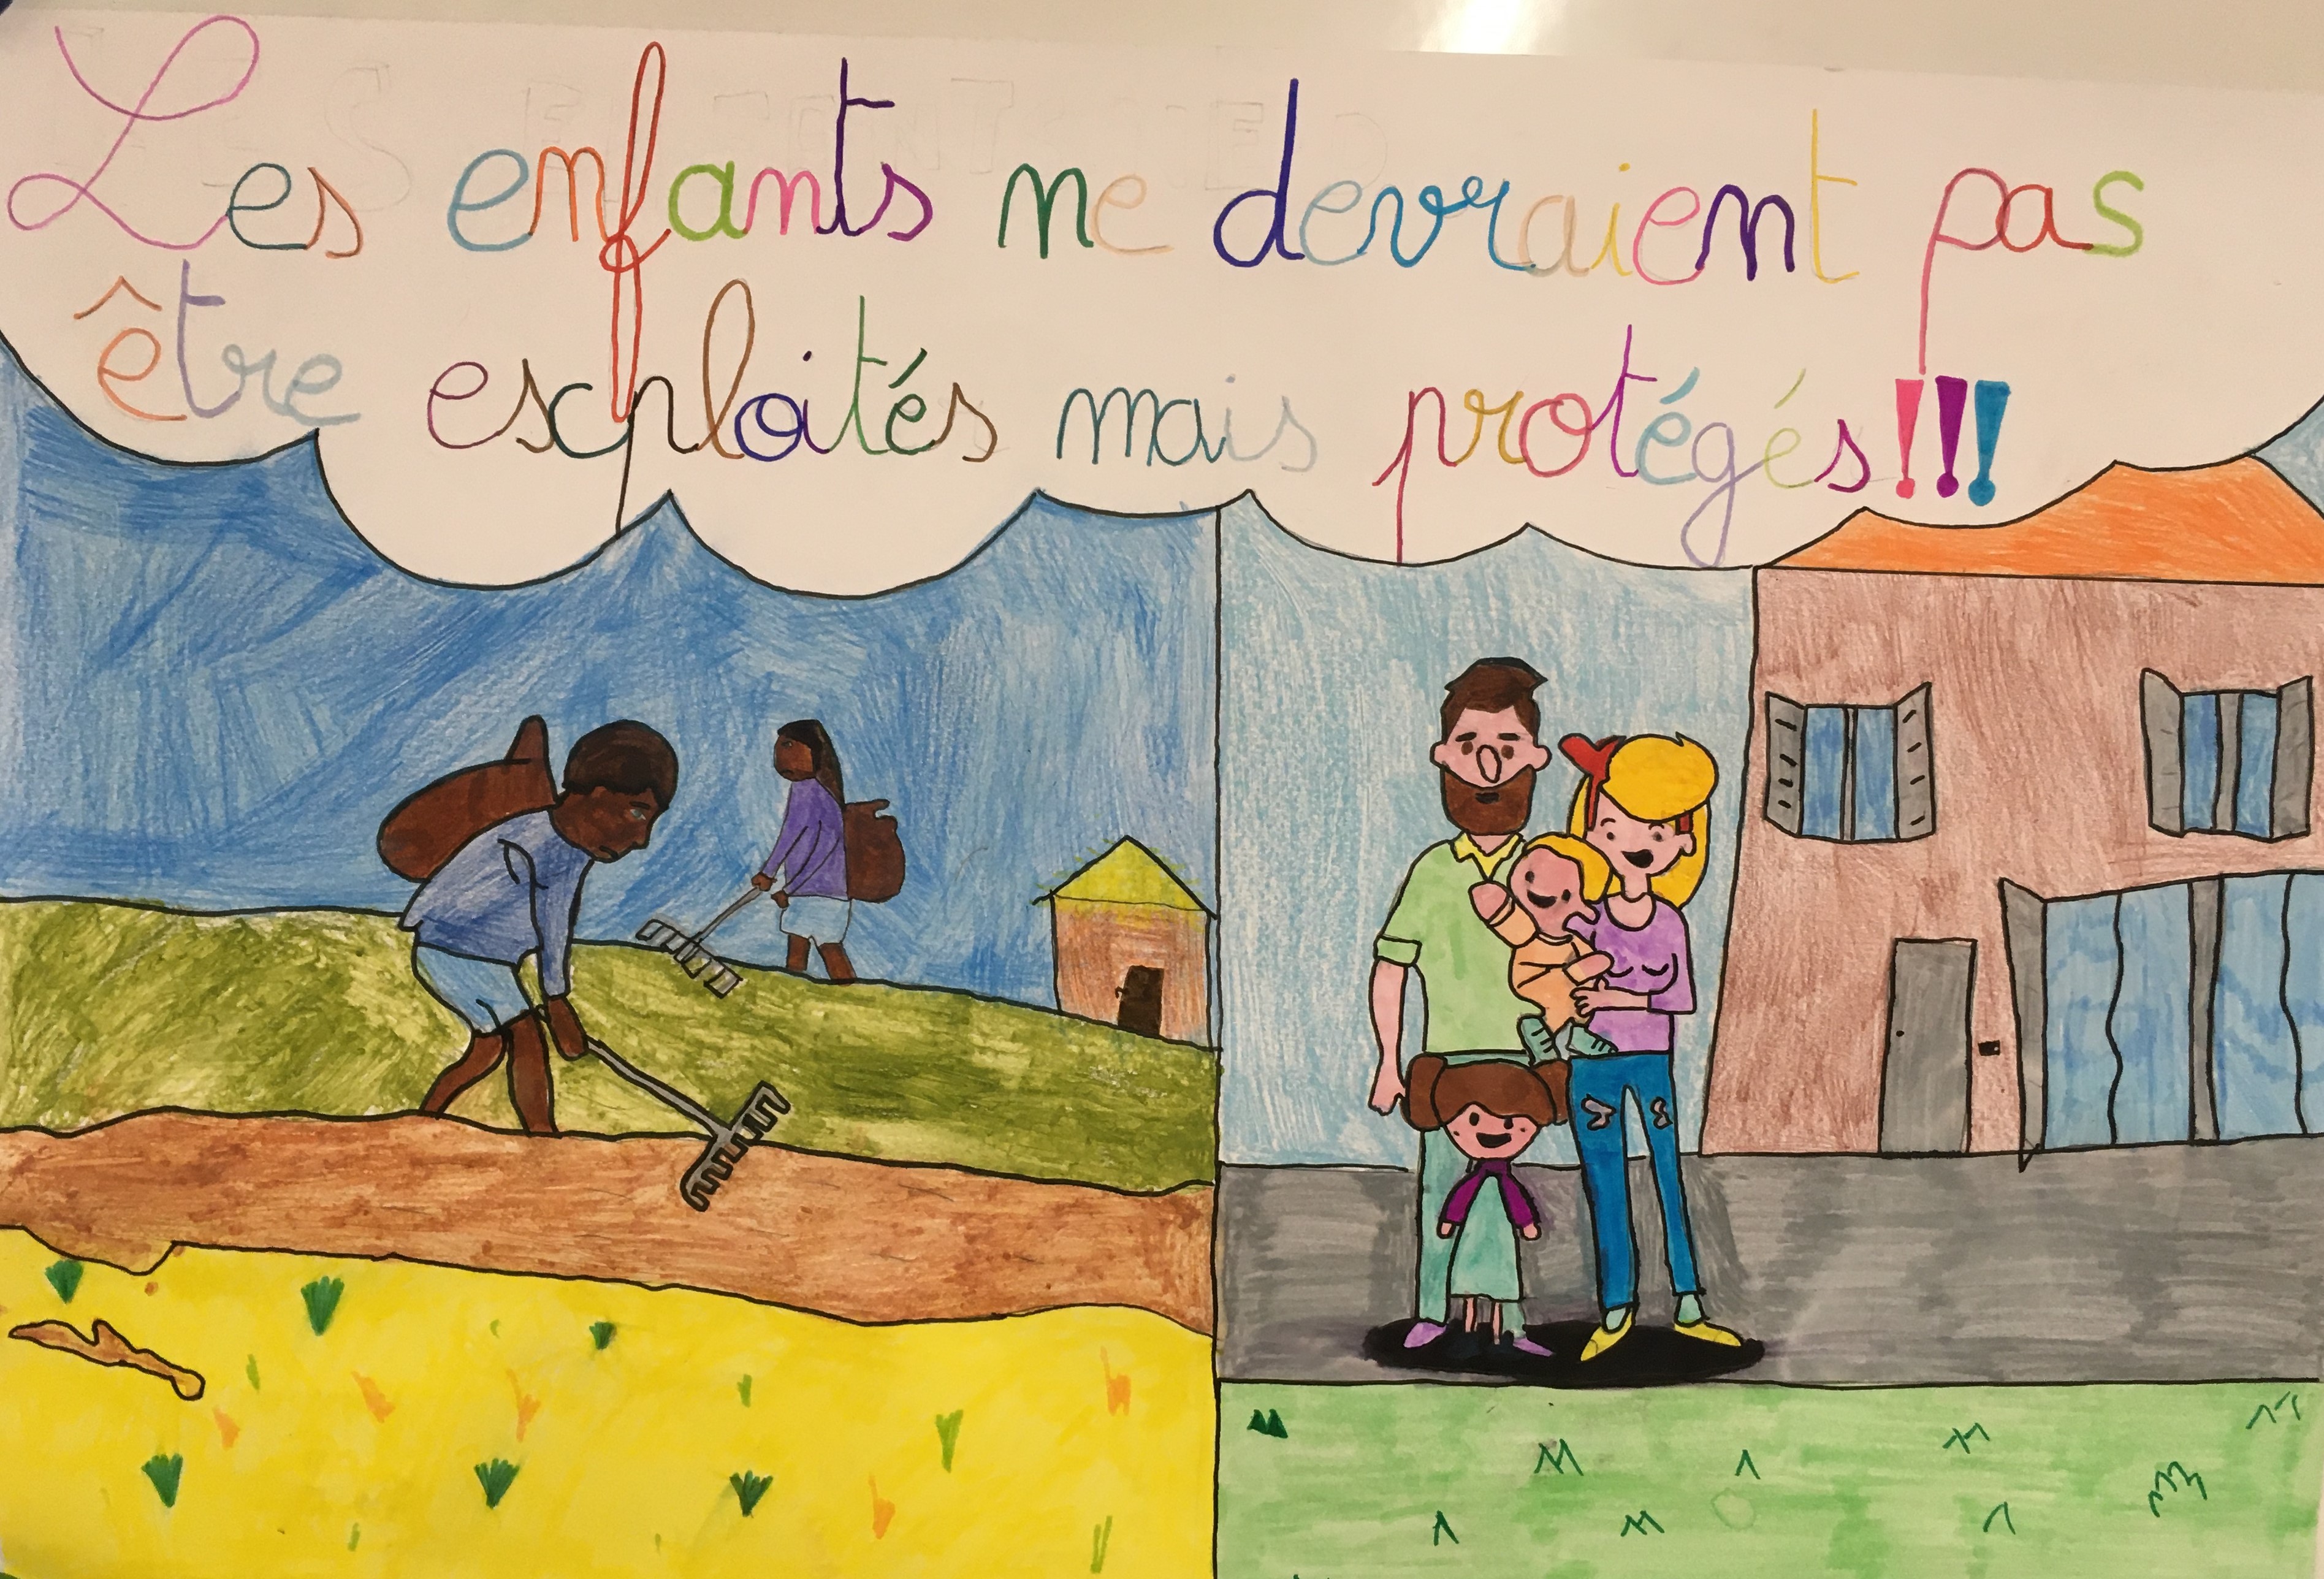 Les enfants ne devraient pas
être exploités mais protégés!!!